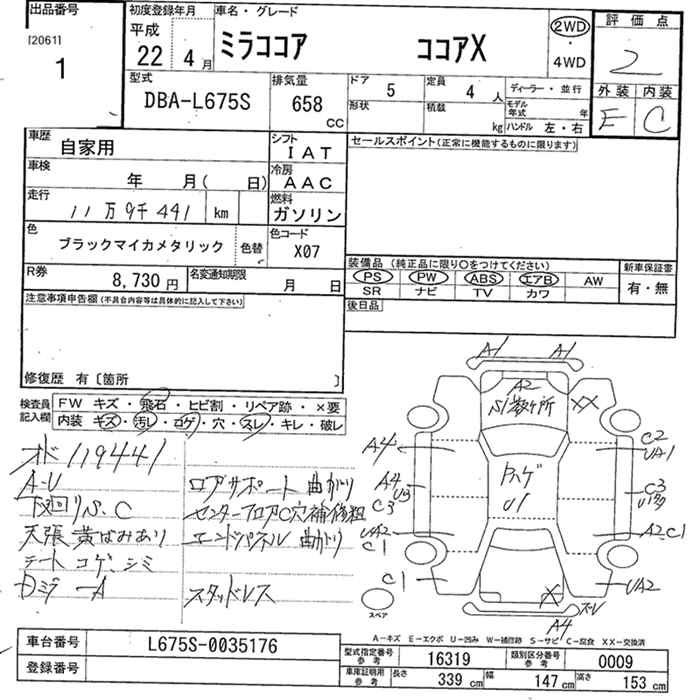 出品番号
[2061]
1
初度登録年月
平成
22年 4月
車名・グレード
ミラココア ココアX
2WD
・
4WD
評価点
2
外装 内装
E C
型式
DBA-L675S
排気量
658
CC
ドア 5
定員 4 人
形状
積載
kg
ディーラー・並行
モデル年式 年
ハンドル 左・右
車歴
自家用
シフト
IAT
車検
年 月( 日)
冷房
AAC
走行
11万9千441 km
燃料
ガソリン
色
ブラックマイカメタリック
色替
色コード
X07
R券
8,730 円
名変通知期限
月 日
セールスポイント(正常に機能するものに限ります)
装備品 (純正品に限り○をつけてください)
PS PW ABS エアB AW
SR ナビ TV カワ
新車保証書
有・無
後日品
注意事項申告欄(不具合内容等は具体的に記入して下さい)
修復歴 有〔箇所 〕
検査員記入欄
FW キズ・飛石・ヒビ割・リペア跡・×要
内装・キズ・汚レ・コゲ・穴・スレ・キレ・破レ
オド119441
A-U
下回りS.C
天張黄ばみあり
シート コゲ、シミ
Dミラ -A
ロアサポート曲がり
センターフロアC穴補修粗
エンドパネル曲がり
スタッドレス
A1 A1
A2
S1数ヶ所
XX
A4
A4
U3
C3
UA2
C1
C1
ハゲ
U1
C2
UA1
C3
A2.C1
UA2
X
A4
スペア
A-キズ E-エクボ U-凹み W-補修跡 S-サビ C-腐食 XX-交換済
車台番号
L675S-0035176
登録番号
型式指定番号 参考
16319
類別区分番号 参考
0009
車庫証明用 参考
長さ 339 cm
幅 147 cm
高さ 153 cm